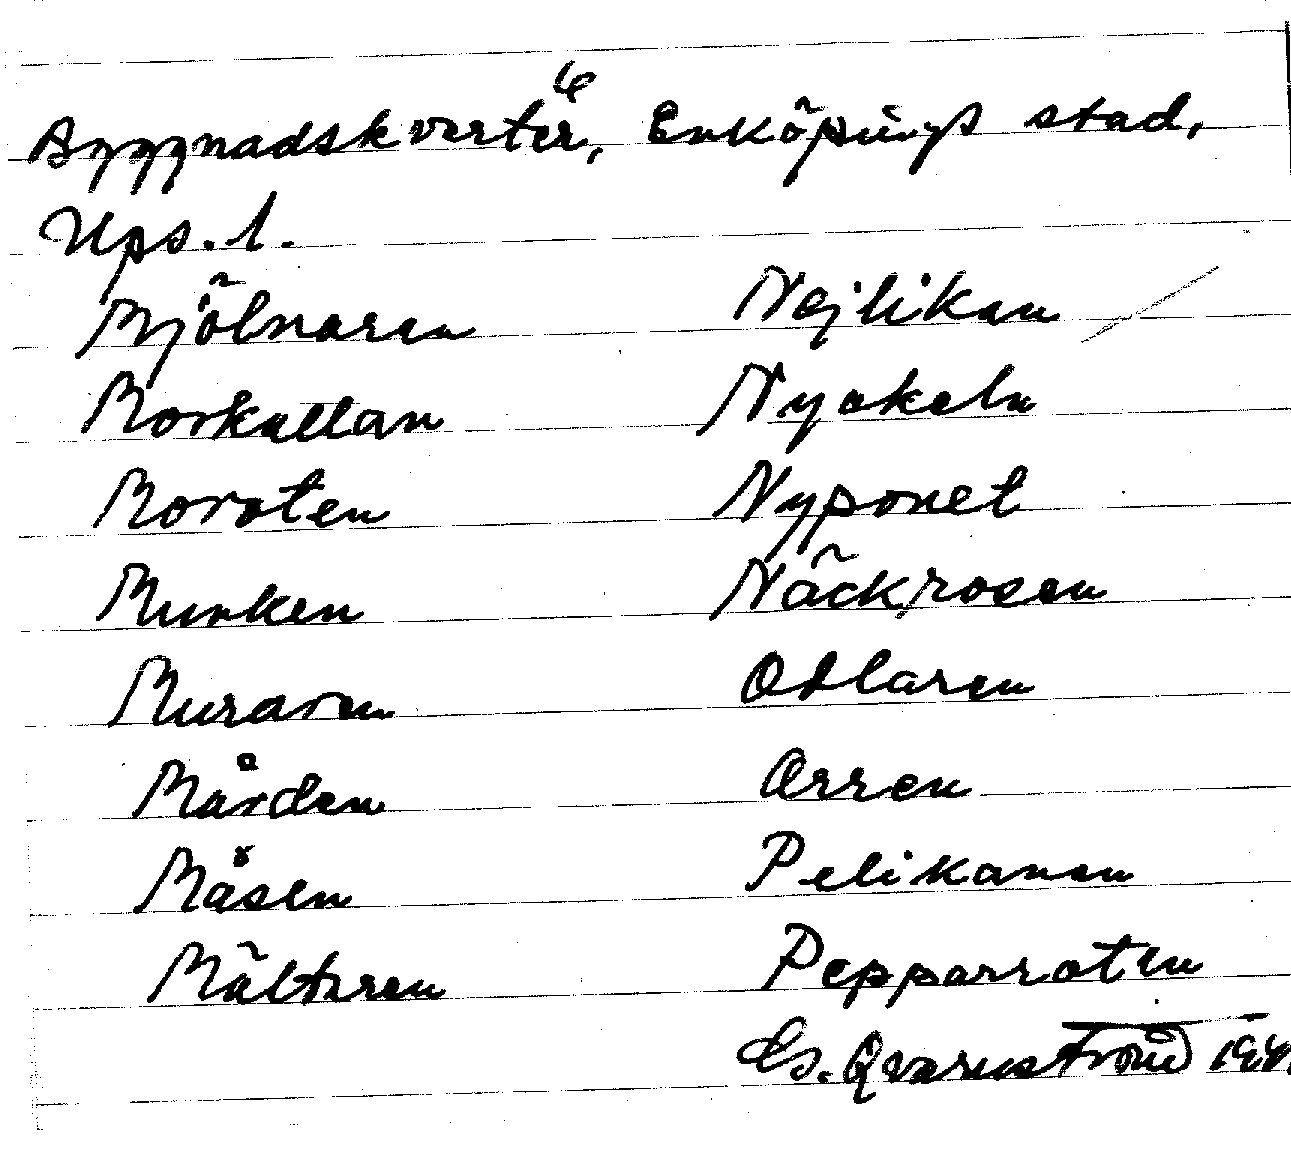 Byggnadskvarter, Enköpings stad,
Ups. l.
Mjölnaren
Morkullan
Moroten
Munken
Muraren
Mården
Måsen
Mältaren
Nejlikan
Nyckeln
Nyponet
Näckrosen
Odlaren
Orren
Pelikanen
Pepparroten
Qvarnström